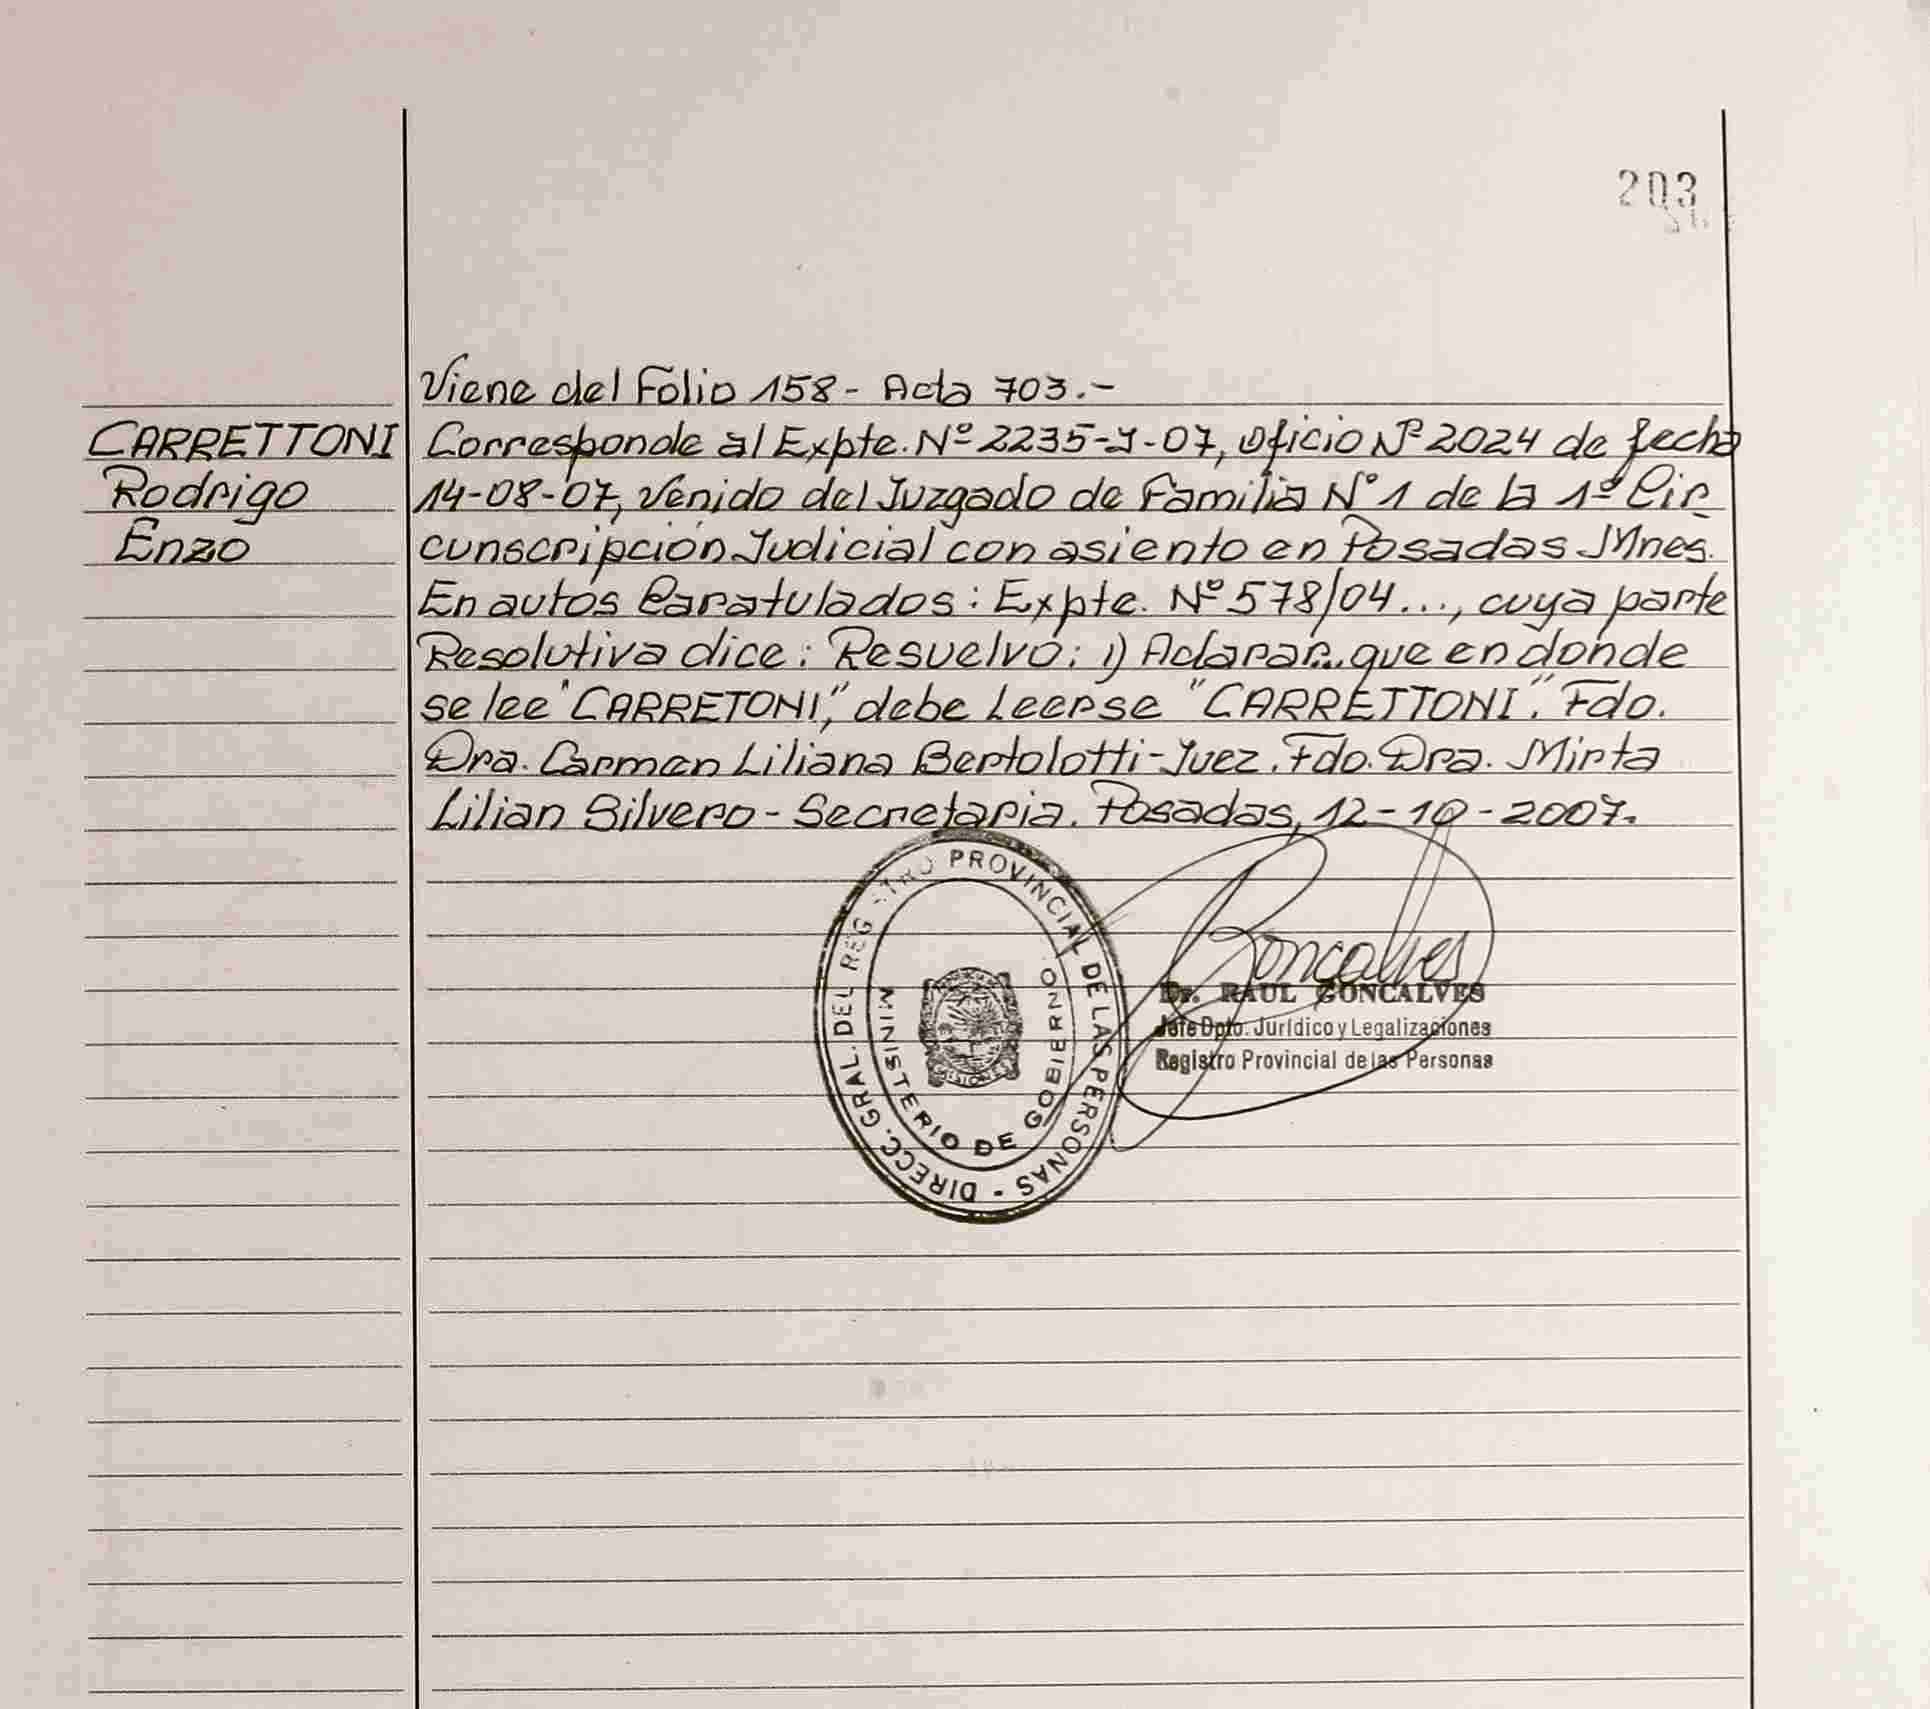 203
Viene del Folio 158 - Acta 703.-
CARRETTONI
Rodrigo
Enzo
Corresponde al Expte. Nº 2235-J-07, oficio Nº 2024 de fecha
14-08-07, Venido del Juzgado de Familia Nº 1 de la 1º Cir
cunscripción Judicial con asiento en Posadas Mnes.
En autos Caratulados: Expte. Nº 578/04..., cuya parte
Resolutiva dice: Resuelvo: 1) Aclarar... que en donde
se lee "CARRETONI," debe Leerse "CARRETTONI". Fdo.
Dra. Carmen Liliana Bertolotti-Juez. Fdo. Dra. Mirta
Lilian Silvero - Secretaria. Posadas, 12-10-2007.
DIRECC. GRAL. DEL REGISTRO PROVINCIAL DE LAS PERSONAS -
MINISTERIO DE GOBIERNO
Goncalves
Dr. RAUL GONCALVES
Jefe Dpto. Jurídico y Legalizaciones
Registro Provincial de las Personas